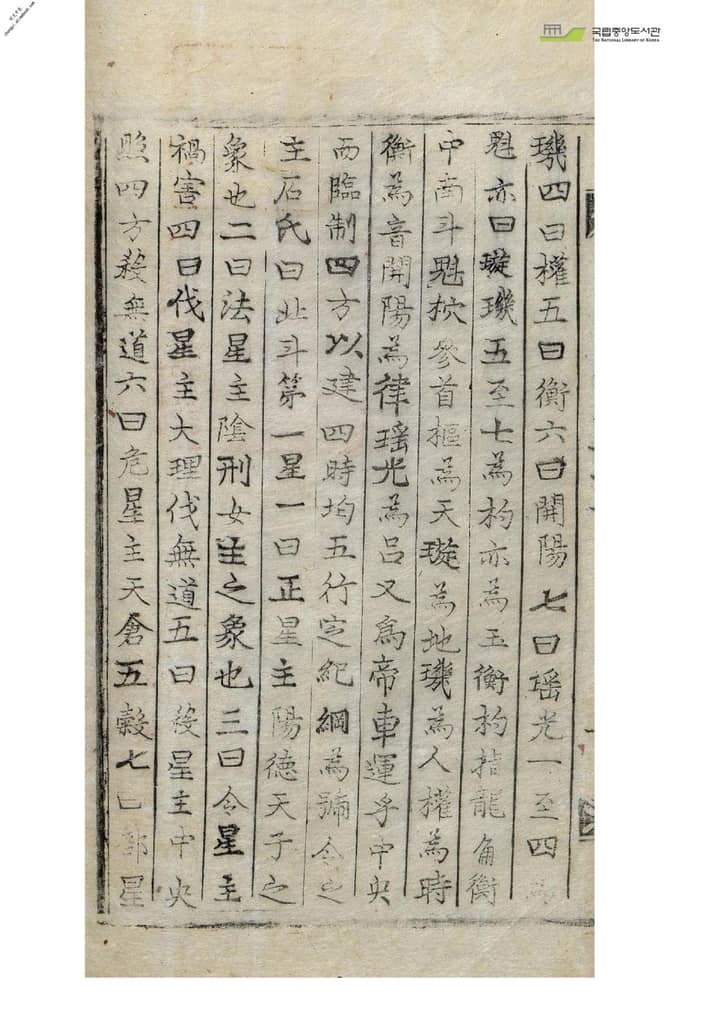 국립중앙도서관
THE NATIONAL LIBRARY OF KOREA
璣四曰權五曰衡六曰開陽七曰瑤光一至四為
魁亦曰璇璣五至七為杓亦為玉衡杓㨗龍角衡
中南斗魁枕參首樞為天璇為地璣為人權為時
衡為音開陽為律瑤光為呂又為帝車運乎中央
而臨制四方以建四時均五行定紀綱為號令之
主石氏曰北斗第一星一曰正星主陽德天子之
象也二曰法星主陰刑女主之象也三曰令星主
禍害四曰伐星主大理伐無道五曰殺星主中央
照四方殺無道六曰危星主天倉五穀七曰部星